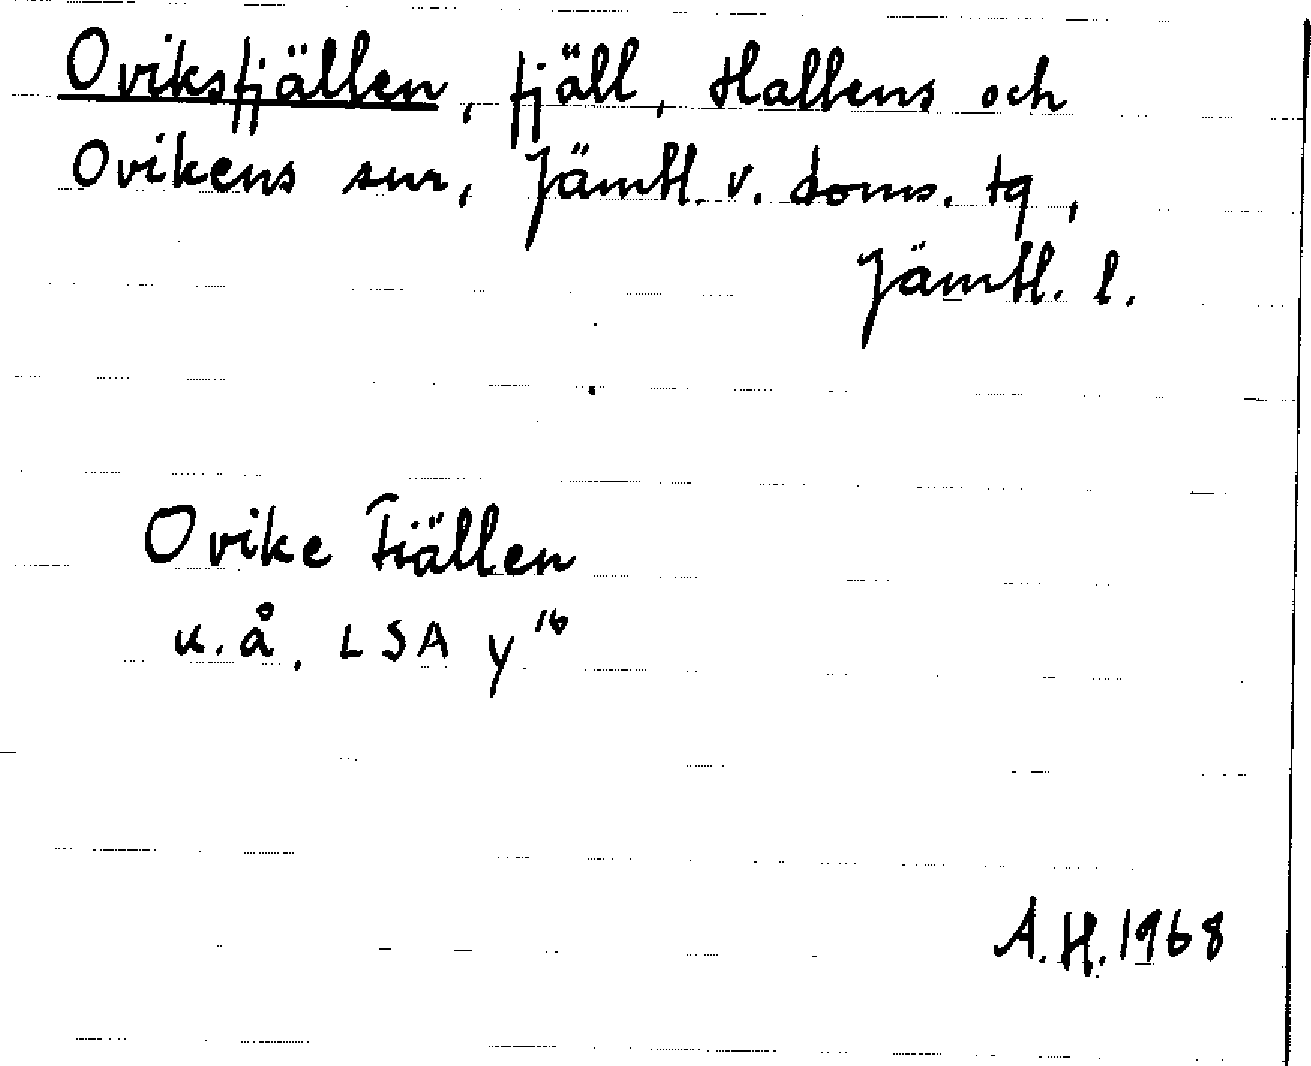 Oviksfjällen, fjäll, Hallens och
Ovikens snr, Jämtl. v. doms. tg,
Jämtl. l.
Ovike Fiällen
u.å. LSA y 16
A.H. 1968